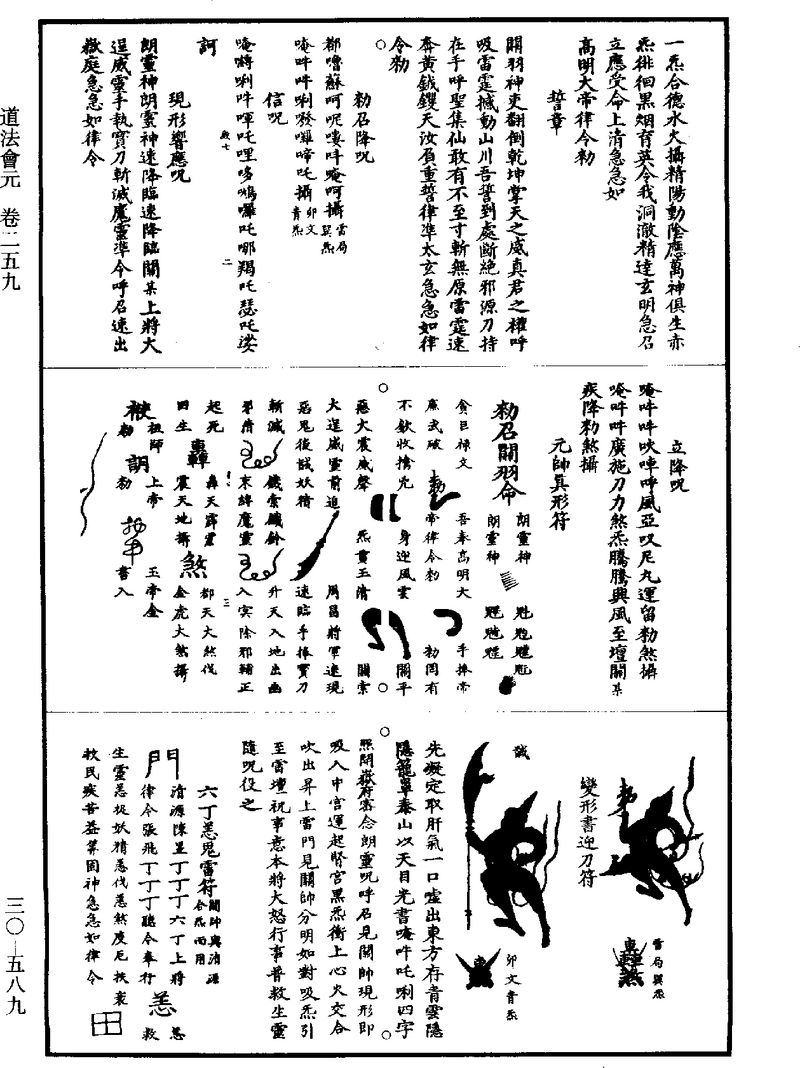 道法會元　卷二五九
三〇—五八九
一炁合德水火攝精陽動陰應萬神俱生赤
炁徘徊黑烟育英令我洞澈精達玄明急召
立應受命上清急急如
高明大帝律令勑
誓章
關羽神吏翻倒乾坤掌天之威真君之權呼
吸雷霆撼動山川吾誓到處斷絕邪源刀持
在手呼聖集仙敢有不至寸斬無原雷霆速
奔黃鉞钁天汝負重誓律準太玄急急如律
令勑
勑召降呪
都嚕蘇呵呢嘍吽唵呵攝雷局巽炁
唵吽吽唎癹囉啼吒攝卯文青炁
信呪
現形響應呪
朗靈神朗靈神速降臨速降臨關某上將大
逞威靈手執寶刀斬滅魔靈準令呼召速出
嶽庭急急如律令
立降呪
唵吽吽吷啴呼風亞叹尼丸運留勑煞攝
唵吽吽廣施刀刀煞炁騰騰興風至壇關某
疾降勑煞攝
元帥真形符
勑召關羽命
朗靈神
朗靈神
貪巨祿文
廉武破
吾奉高明大
帝律令勑
手捧帝
勑罔有
不欽收擒兇
身迎風雲
關平
惡大震威聲
炁貫玉清
關索
大逞威靈前追
周昌將軍速現
惡鬼後馘妖精
速臨手捧寶刀
斬滅
鐵索鐵鈴
升天入地出幽
束縛魔靈
入冥除邪輔正
起死
轟天霹靂
都天大煞伐
回生
震天地攝
煞
金虎大煞攝
祖師
上帝
玉帝金
勑
勑
書入
變形書迎刀符
雷局巽炁
卯文青炁
先凝定取肝氣一口噓出東方存青雲隱
隱籠罩泰山以天目光書唵吽吒唎四字
照開嶽府密念朗靈呪呼召見關帥現形即
吸入中宮運起腎宮黑炁衝上心火交合
吹出昇上雷門見關帥分明如對吸炁引
至雷壇祝事意本將大怒行事普救生靈
隨呪役之
六丁恙鬼雷符關帥與清源合炁而用
清源陳呈丁丁丁六丁上將
律令張飛丁丁丁聽令奉行
恙
恙
救
生靈恙捉妖精恙伐恙煞度厄扶衰
救民疾苦益筭固神急急如律令